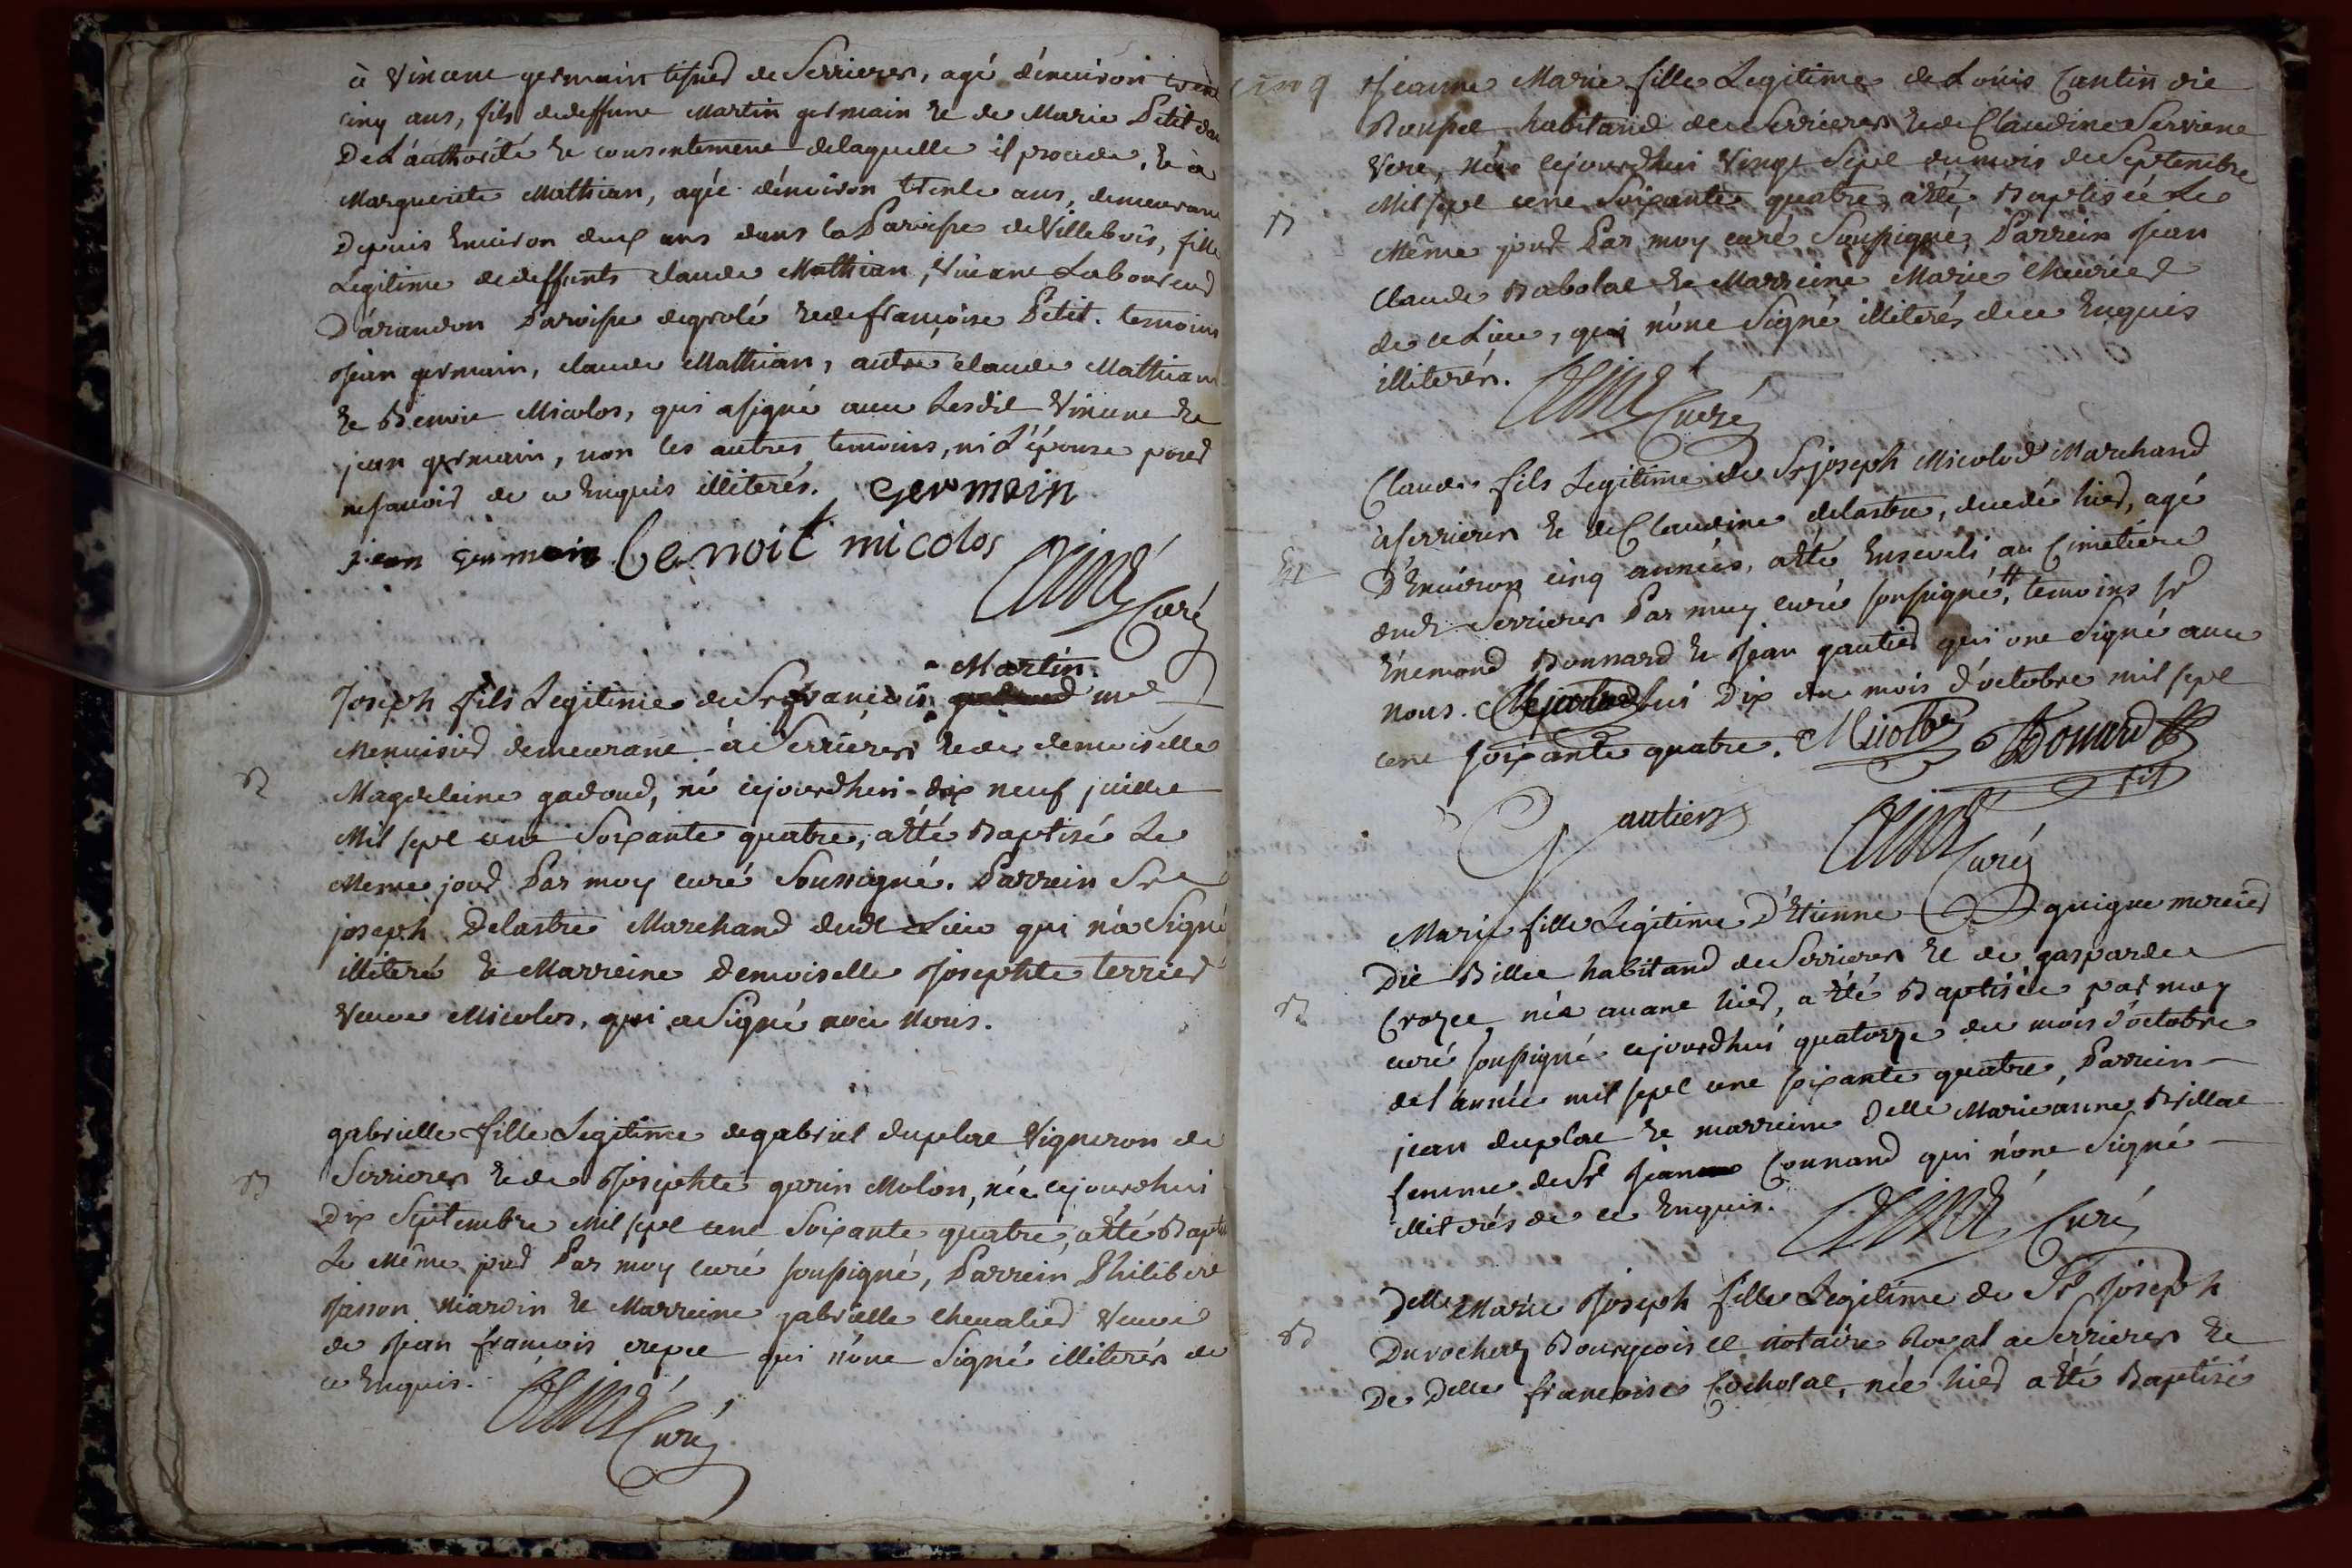 à Vincent germain tisserd de Serrieres, agé d'environ trente
cinq ans, fils de deffunt Martin germain et de Marie Petit
De L'authorité et consentement delaquelle il procede, et à
Marguerite Mathian, agée d'environ trente ans, demeurant
Depuis Environ deux ans dans la Paroisse de Villebois, fille
Legitime de deffunts claude Mathian, Vivant Laboureur
D'arandon Paroisse de grolé et de françoise Petit. temoins
Jean germain, claude Mathian, autre claude Mathian
et Benoit Micolos, qui a signé avec Lesdit Vincent et
jean germain, non les autres temoins, ni L'épouse pour
ne sçavoir de ce Enquis illiterés. Germain
jean germain benoit micolos
Aimé Curé
Martin
Joseph fils Legitime de Sr françois me
Menuisier demeurant à Serrieres et de demoiselle
B
Magdeleine gadoud, né cejourdhui dix neuf juillet
Mil sept cent Soixante quatre, a été Baptisé Le
Meme jour Par moy curé Soussigné. Parrein Sr
joseph Delastre Marchand dudt Lieu qui n'a Signé
illiteré et Marreine Demoiselle Josephte terrier
Veuve Micolos, qui a Signé avec Nous.
gabrielle fille Legitime de gabriel duplat Vigneron de
B
Serrieres et de Josephte garin Molon, née cejourdhui
Dix Septembre Mil sept cent Soixante quatre, a été Baptisée
Le Même jour Par moy curé soussigné, Parrein Philibert
Janon et Marreine gabrielle chevalier Veuve
de Jean françois crepet qui n'ont Signé illiterés de
ce Enquis.
Aimé Curé
cinq
Jeanne Marie fille Legitime de Loüis Cantin dit
Poupet habitant de Serrieres et de Claudine Servient
Vere, née cejourdhui Vingt Sept du mois de Septembre
Mil sept cent Soixante quatre, a été Baptisée Le
B
Même jour Par moy curé Soussigné, Parrein Jean
Claude Babolat et Marreine Marie
de ce Lieu, qui n'ont Signé illiterés de ce Enquis
illiterés.
Aimé Curé
Claude fils Legitime de Sr joseph Micolod Marchand
à Serrieres et de Claudine delastre, decedé hier, agé
Ent
D'Environ cinq années, a été Enseveli au Cimetiere
dudt Serrieres Par moy curé soussigné, temoins Sr
Enemond Bonnard et Jean gautier qui ont Signé avec
nous. Cejourdhui Dix du mois d'octobre mil sept
cent soixante quatre. Micolod Bonard fils
Gautier
Aimé Curé
Marie fille Legitime D'Etienne quigue mercier
Dit Billet habitant de Serrieres et de gasparde
B
Crozet née avant hier, a été Baptisée par moy
curé soussigné cejourdhui quatorze du mois d'octobre
de l'année mil sept cent soixante quatre, Parrein
jean duplat et marreine Delle Marie anne Brillat
femme de Sr Jean Connand qui n'ont Signé
illiterés de ce Enquis.
Aimé Curé
Delle Marie Joseph fille Legitime de Sr Joseph
B
Durochery Bourgeois et notaire Royal a Serrieres et
De Delle françoise Cocholat, née hier a été Baptisée